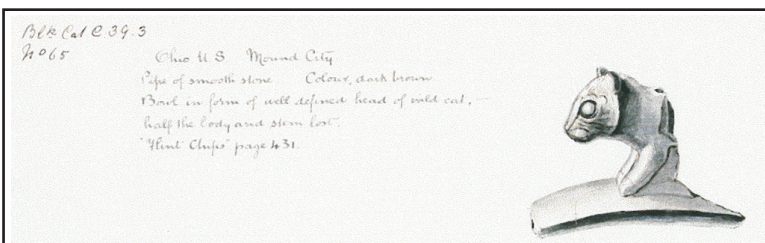 Blk Cat C 39-3
No 65
Ohio U S Mound City
Pipe of smooth stone Colour, dark brown
Bowl in form of well defined head of wild cat, —
half the body and stem lost.
"Flint Chips" page 431.